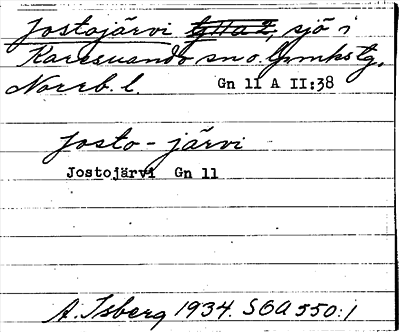 Jostojärvi, sjö i
Karesuando sn o. lpmkstg,
Norrb. l. Gn 11 A II:38
Josto-järvi
Jostojärvi Gn 11
A. Isberg 1934. SOA 550:1